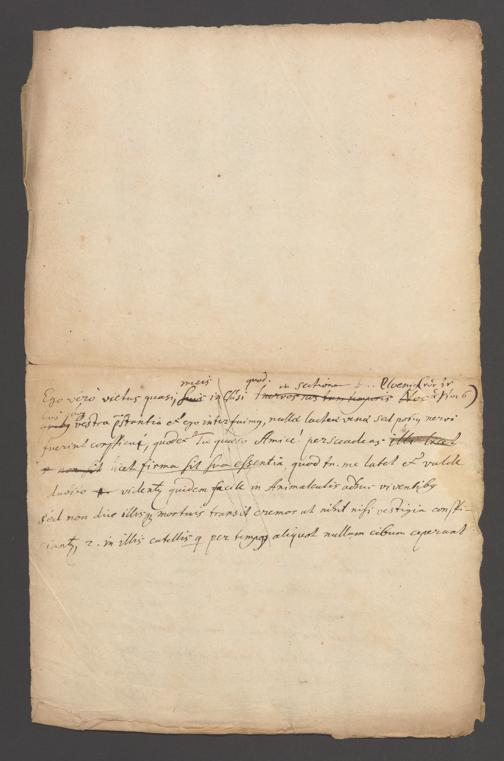 meis quod in sectione
Ego vero victus quasi suis inscisi nervos nos tum temporis
vestra pstantia et ego interfuimq, nulla lactea vena sed potiq nervi
fuerint conspecti, quod Tu quaeso Amice persuadeas
non sit licet firma sit sua essentia quod tn. me latet et valde
dubito videntq quidem facile in Animalculis adhuc viventibq
sed non diu illisq mortuis transit cremor ut nihil nisi vestigia conspi-
ciantq, 2. in illis catellis q per tempq aliquot nullum cibum ceperunt